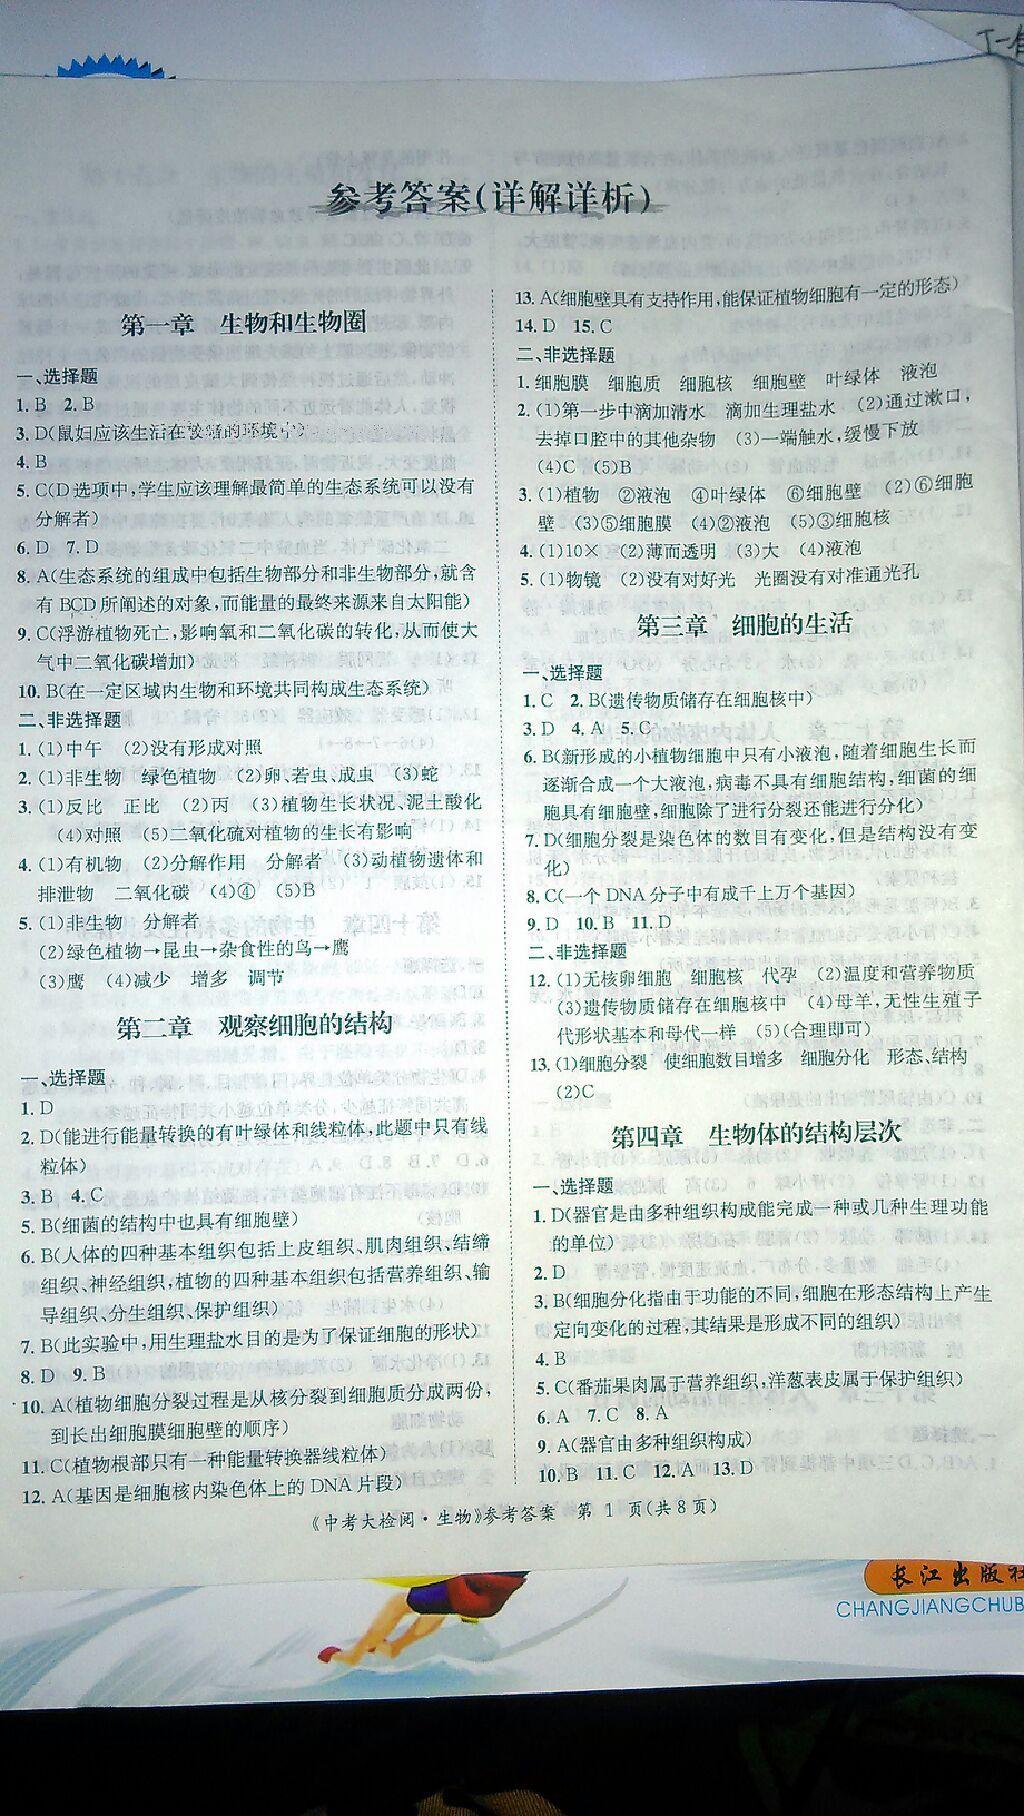 参考答案(详解详析)
第一章 生物和生物圈
一、选择题
1. B 2. B
3. D(鼠妇应该生活在较暗的环境中)
4. B
5. C(D选项中,学生应该理解最简单的生态系统可以没有
分解者)
6. D 7. D
8. A(生态系统的组成中包括生物部分和非生物部分,就含
有BCD所阐述的对象,而能量的最终来源来自太阳能)
9. C(浮游植物死亡,影响氧和二氧化碳的转化,从而使大
气中二氧化碳增加)
10. B(在一定区域内生物和环境共同构成生态系统)
二、非选择题
1. (1)中午 (2)没有形成对照
2. (1)非生物 绿色植物 (2)卵、若虫、成虫 (3)蛇
3. (1)反比 正比 (2)丙 (3)植物生长状况、泥土酸化
(4)对照 (5)二氧化硫对植物的生长有影响
4. (1)有机物 (2)分解作用 分解者 (3)动植物遗体和
排泄物 二氧化碳 (4)④ (5)B
5. (1)非生物 分解者
(2)绿色植物→昆虫→杂食性的鸟→鹰
(3)鹰 (4)减少 增多 调节
第二章 观察细胞的结构
一、选择题
1. D
2. D(能进行能量转换的有叶绿体和线粒体,此题中只有线
粒体)
3. B 4. C
5. B(细菌的结构中也具有细胞壁)
6. B(人体的四种基本组织包括上皮组织、肌肉组织、结缔
组织、神经组织,植物的四种基本组织包括营养组织、输
导组织、分生组织、保护组织)
7. B(此实验中,用生理盐水目的是为了保证细胞的形状)
8. D 9. B
10. A(植物细胞分裂过程是从核分裂到细胞质分成两份,
到长出细胞膜细胞壁的顺序)
11. C(植物根部只有一种能量转换器线粒体)
12. A(基因是细胞核内染色体上的DNA片段)
13. A(细胞壁具有支持作用,能保证植物细胞有一定的形态)
14. D 15. C
二、非选择题
1. 细胞膜 细胞质 细胞核 细胞壁 叶绿体 液泡
2. (1)第一步中滴加清水 滴加生理盐水 (2)通过漱口,
去掉口腔中的其他杂物 (3)一端触水,缓慢下放
(4)C (5)B
3. (1)植物 ②液泡 ④叶绿体 ⑥细胞壁 (2)⑥细胞
壁 (3)⑤细胞膜 (4)②液泡 (5)③细胞核
4. (1)10× (2)薄而透明 (3)大 (4)液泡
5. (1)物镜 (2)没有对好光 光圈没有对准通光孔
第三章 细胞的生活
一、选择题
1. C 2. B(遗传物质储存在细胞核中)
3. D 4. A 5. C
6. B(新形成的小植物细胞中只有小液泡,随着细胞生长而
逐渐合成一个大液泡,病毒不具有细胞结构,细菌的细
胞具有细胞壁,细胞除了进行分裂还能进行分化)
7. D(细胞分裂是染色体的数目有变化,但是结构没有变
化)
8. C(一个DNA分子中有成千上万个基因)
9. D 10. B 11. D
二、非选择题
12. (1)无核卵细胞 细胞核 代孕 (2)温度和营养物质
(3)遗传物质储存在细胞核中 (4)母羊,无性生殖子
代形状基本和母代一样 (5)(合理即可)
13. (1)细胞分裂 使细胞数目增多 细胞分化 形态、结构
(2)C
第四章 生物体的结构层次
一、选择题
1. D(器官是由多种组织构成能完成一种或几种生理功能
的单位)
2. D
3. B(细胞分化指由于功能的不同,细胞在形态结构上产生
定向变化的过程,其结果是形成不同的组织)
4. B
5. C(番茄果肉属于营养组织,洋葱表皮属于保护组织)
6. A 7. C 8. A
9. A(器官由多种组织构成)
10. B 11. C 12. A 13. D
《中考大检阅·生物》参考答案 第 1 页(共8页)
长江出版社
CHANGJIANGCHUB